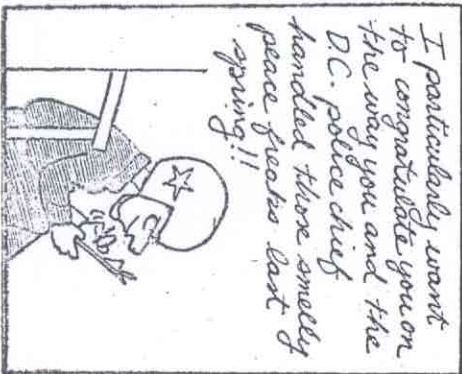 I particularly want
to congratulate you on
the way you and the
D.C. police chief
handled those smelly
peace freaks last
spring!!